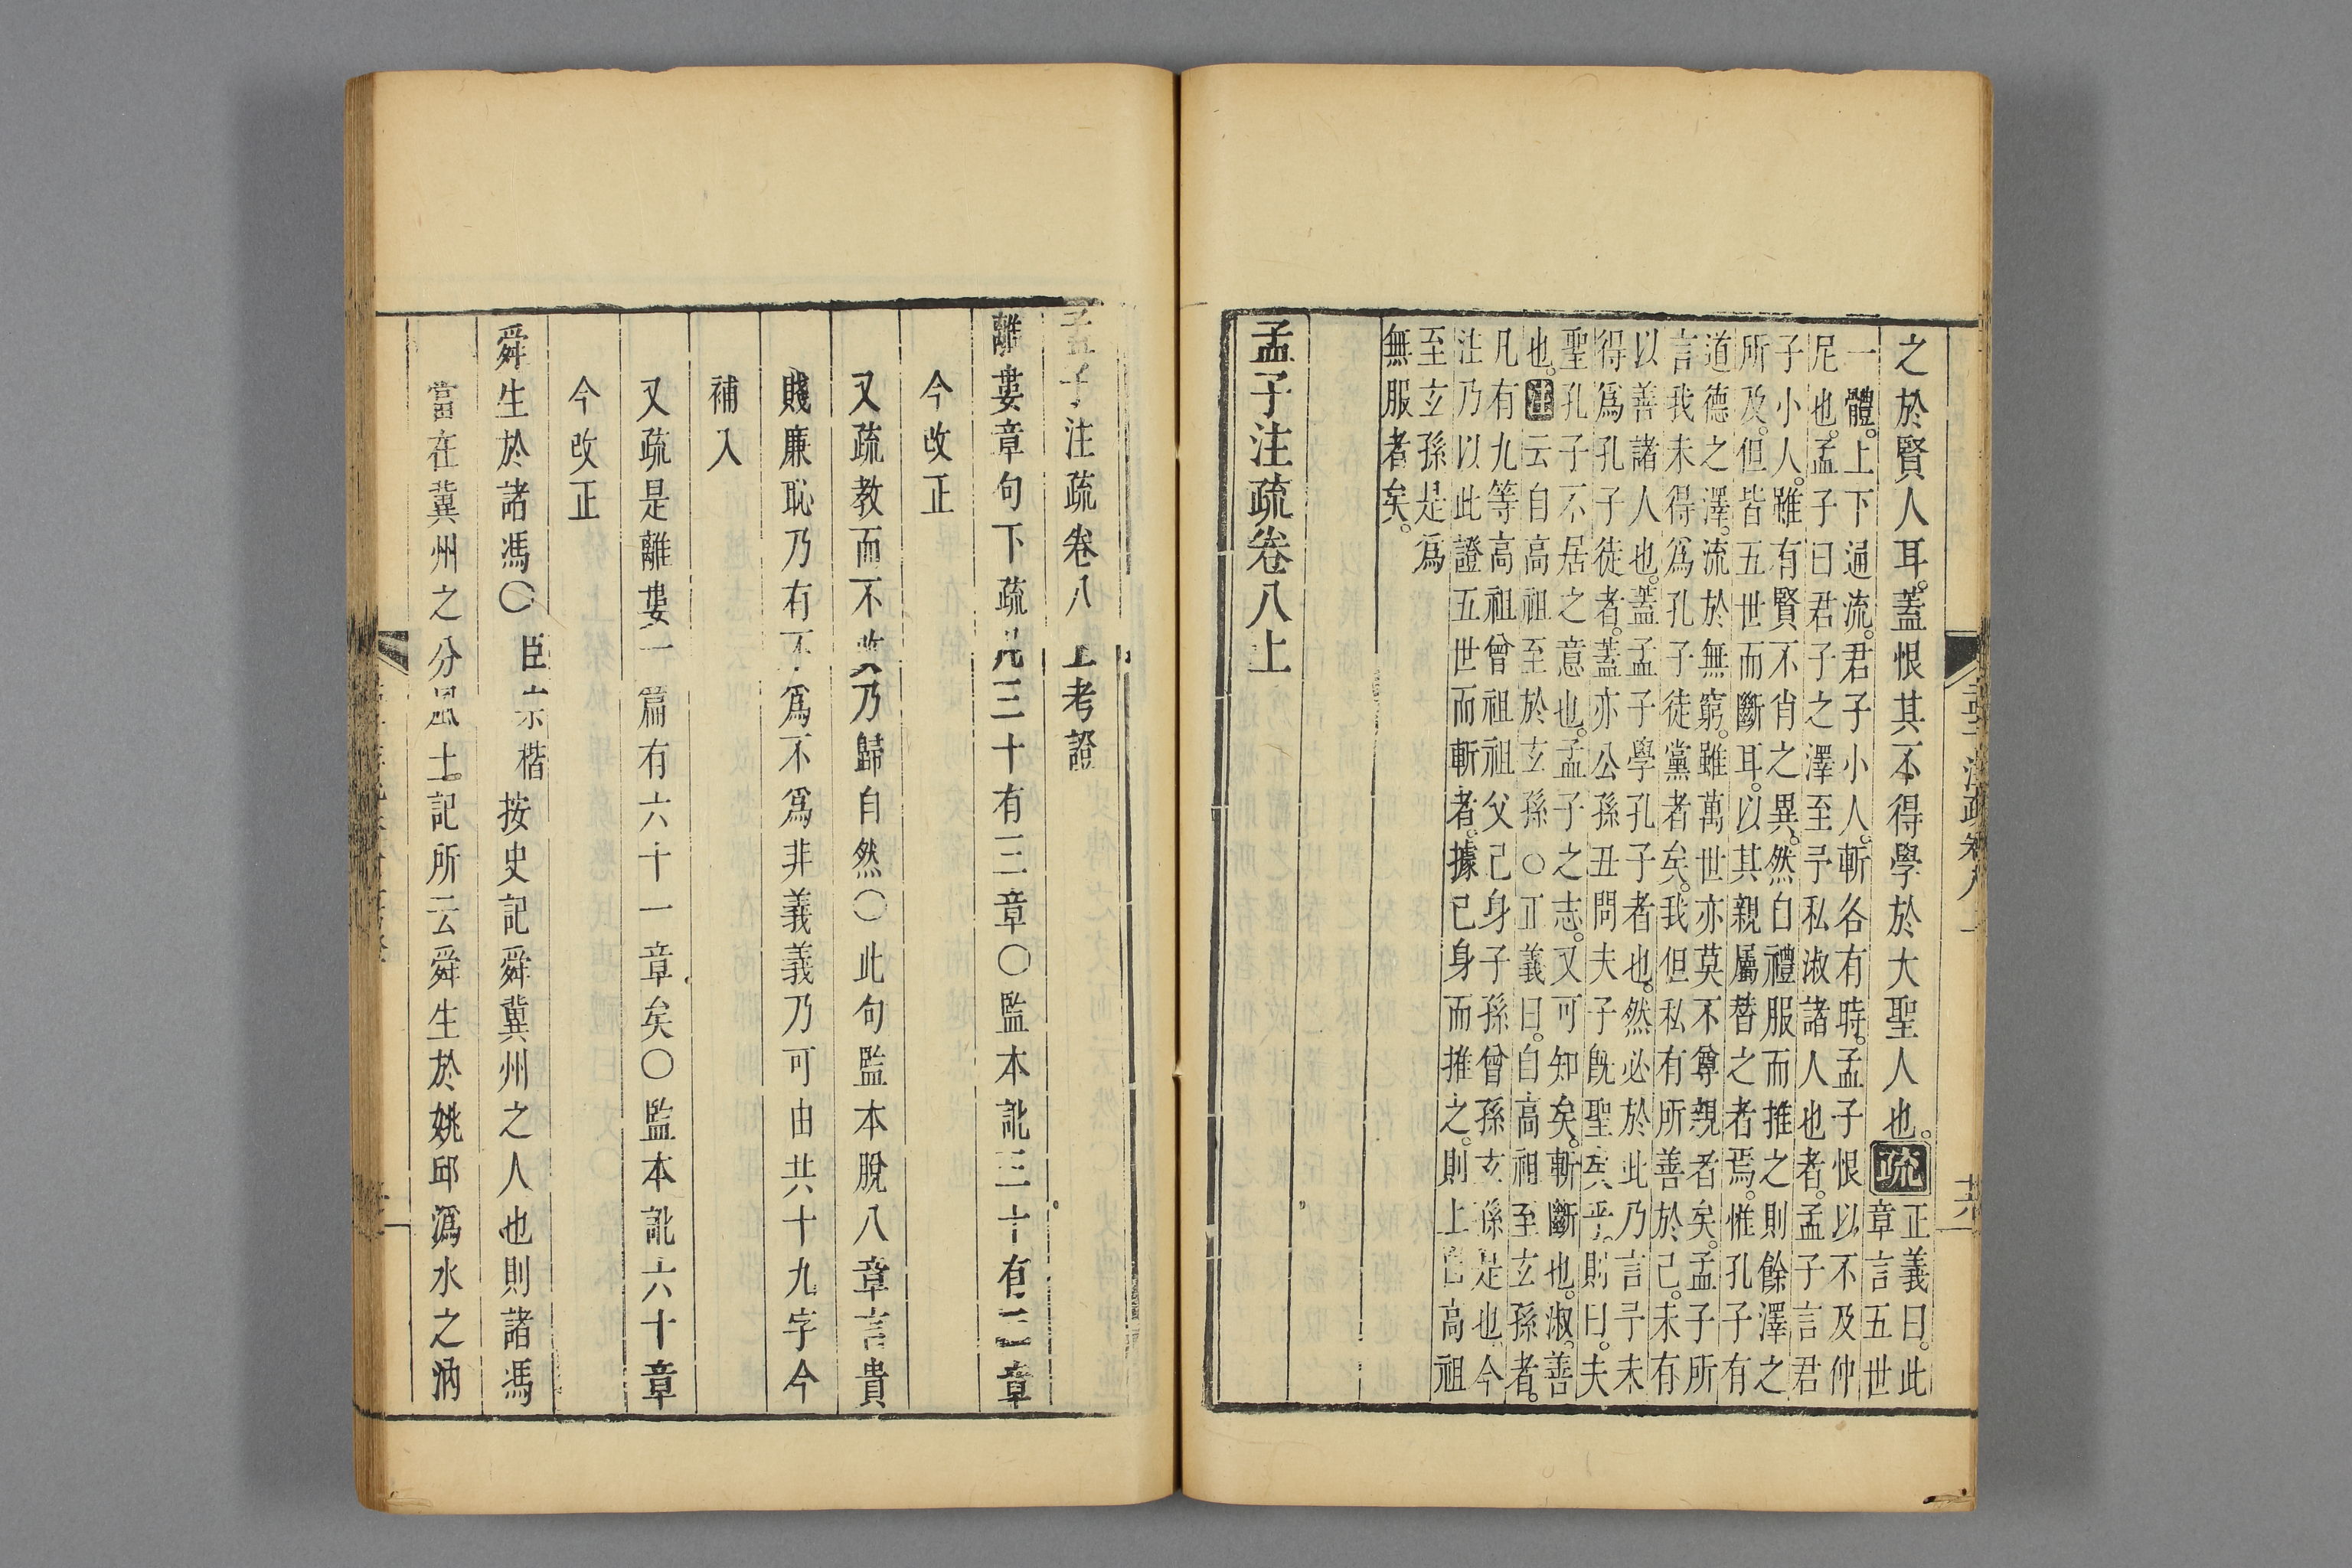 之於賢人耳。蓋恨其不得學於大聖人也。疏
正義曰。此
章言五世
一體。上下通流。君子小人。斬各有時。孟子恨以不及仲
尼也。孟子曰君子之澤至予私淑諸人也者。孟子言君
子小人。雖有賢不肖之異。然自禮服而推之則餘澤之
所及。但皆五世而斷耳。以其親屬替之者焉。惟孔子有
道德之澤。流於無窮。雖萬世亦莫不尊親者矣。孟子所
言我未得爲孔子徒黨者矣。我但私有所善於己。未有
以善諸人也。蓋孟子學孔子者也。然必於此乃言予未
得爲孔子徒者。蓋亦公孫丑問夫子既聖矣乎。則曰。夫
聖孔子不居之意也。孟子之志。又可知矣。斬斷也。淑。善
也。注云自高祖至於玄孫○正義曰。自高祖至玄孫者。
凡有九等高祖曾祖祖父己身子孫曾孫玄孫是也。今
注乃以此證五世而斬者。據己身而推之。則上自高祖
至玄孫是爲
無服者矣。
孟子注疏卷八上
孟子注疏卷八上考證
離婁章句下疏凡三十有三章○監本訛三十有二章
今改正
又疏教而不改乃歸自然○此句監本脫八章言貴
賤廉恥乃有不爲不爲非義義乃可由共十九字今
補入
又疏是離婁一篇有六十一章矣○監本訛六十章
今改正
舜生於諸馮○臣宗楷按史記舜冀州之人也則諸馮
當在冀州之分風土記所云舜生於姚邱溈水之汭